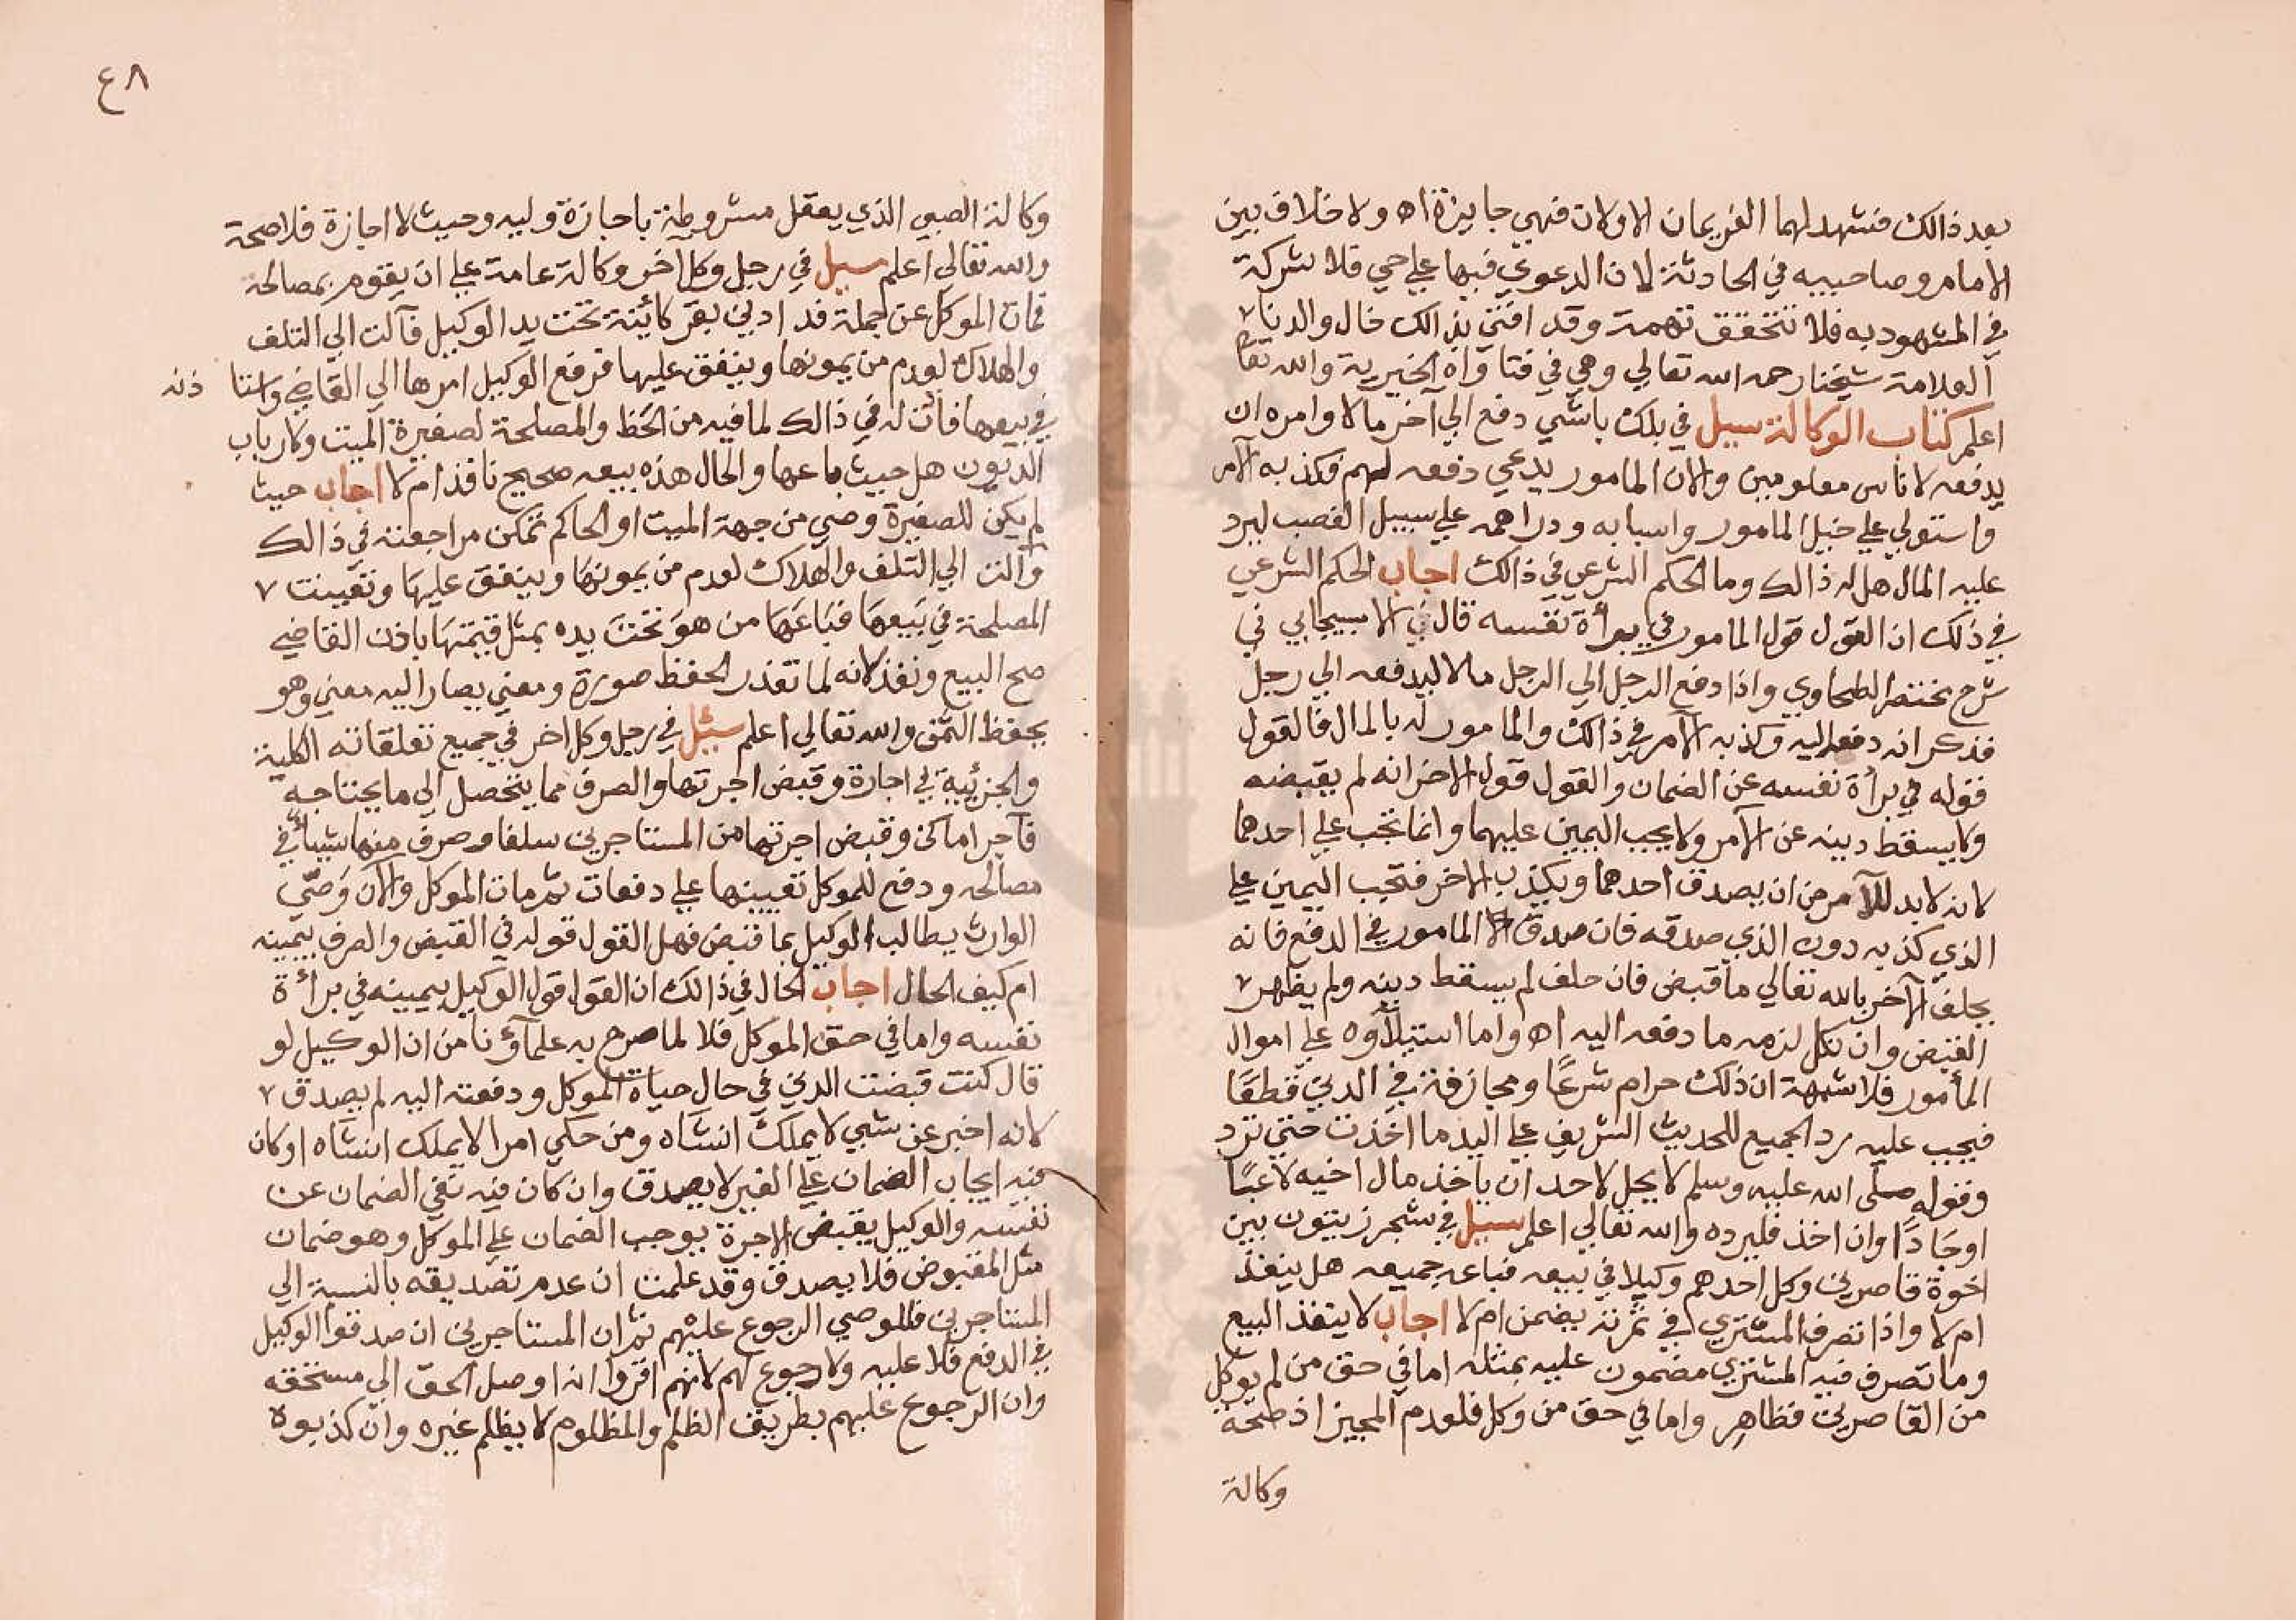 بعد ذالك فشهد لهما الغريمان الاولان فهي جايزة اه ولا خلاف بين
الامام وصاحبيه في الحادثة لان الدعوي فيها علي حي فلا شركة
في المشهود به فلا تتحقق تهمة وقد افتي بذالك خال والدنا
العلامة شيخنا رحمه الله تعالي وهي في فتاواه الخيرية والله تعا
اعلم كتاب الوكالة سيل في بلك باشي دفع الي آخر مالا وامره ان
يدفعه لاناس معلومين والان المامور يدعي دفعه لهم فكذبه الآمر
واستولي علي خيل المامور واسبابه ودراهمه علي سبيل الغصب ليرد
عليه المال هل له ذالك وما الحكم الشرعي في ذالك اجاب الحكم الشرعي
في ذلك ان القول قول المامور في برأة نفسه قال في الاسبيجابي في
شرح مختصر الطحاوي واذا دفع الرجل الي الرجل مالا ليدفعه الي رجل
فذكر انه دفعه اليه وكذبه الآمر في ذالك والمامور له بالمال فالقول
قوله في برأة نفسه عن الضمان والقول قول الاخر انه لم يقبضه
ولا يسقط دينه عن الآمر ولا يجب اليمين عليهما وانما تجب علي احدهما
لانه لابد للآمر من ان يصدق احدهما ويكذب الاخر فتجب اليمين علي
الذي كذبه دون الذي صدقه فان صدق المامور في الدفع فانه
يحلف الآخر بالله تعالي ما قبض فان حلف لم يسقط دينه ولم يظهر
القبض وان نكل لزمه ما دفعه اليه اه واما استيلآوه علي اموال
المأمور فلا شبهة ان ذلك حرام شرعًا ومجازفة في الدين قطعًا
فيجب عليه رد الجميع للحديث الشريف علي اليد ما اخذت حتي ترد
وقوله صلى الله عليه وسلم لا يحل لاحد ان ياخذ مال اخيه لاعبًا
او جادًا وان اخذ فليرده والله تعالي اعلم سيل في شجر زيتون بين
اخوة قاصرين وكل احدهم وكيلا في بيعه فباعه جميعه هل ينفذ
ام لا واذا تصرف المشتري في ثمرته يضمن ام لا اجاب لا ينفذ البيع
وما تصرف فيه المشتري مضمون عليه بمثله اما في حق من لم يوكل
من القاصرين فظاهر واما في حق من وكل فلعدم المجيز اذ صحة
وكالة
٤٨
وكالة الصبي الذي يعقل مشروطة باجازة وليه وحيث لا اجازة فلا صحة
والله تعالي اعلم سيل في رجل وكل آخر وكالة عامة علي ان يقوم بمصالحه
فمات الموكل عن جملة فدادين بقر كائنة تحت يد الوكيل فآلت الي التلف
والهلاك لعدم من يمونها وينفق عليها فرفع الوكيل امرها الي القاضي واستا ذنه
في بيعها فاذن له في ذالك لما فيه من الحظ والمصلحة لصغيرة الميت ولارباب
الديون هل حيث باعها والحال هذه بيعه صحيح نافذ ام لا اجاب حيث
لم يكن للصغيرة وصي من جهة الميت او الحاكم تمكن مراجعته في ذالك
وآلت الي التلف والهلاك لعدم من يمونها وينفق عليها وتعينت
المصلحة في بيعها فباعها من هو تحت يده بمثل قيمتها باذن القاضي
صح البيع ونفذ لانه لما تعذر الحفظ صورة ومعني يصار اليه معني وهو
بحفظ الثمن والله تعالي اعلم سئل في رجل وكل اخر في جميع تعلقاته الكلية
والجزئية في اجارة وقبض اجرتها والصرف مما يتحصل الي ما يحتاجه
فآجر اماكن وقبض اجرتها من المستاجرين سلفا وصرف منها شيأ في
مصالحه ودفع للموكل تعيينها علي دفعات ثم مات الموكل والآن وصّي
الوارث يطالب الوكيل بما قبض فهل القول قوله في القبض والصرف بيمينه
ام كيف الحال اجاب الحال في ذالك ان القول قول الوكيل بيمينه في برأة
نفسه واما في حق الموكل فلا لما صرح به علمآؤنا من ان الوكيل لو
قال كنت قبضت الدين في حال حياة الموكل ودفعته اليه لم يصدق
لانه اخبر عن شيي لا يملك انشآه ومن حكي امرا لا يملك انشآه او كان
فيه ايجاب الضمان علي الغير لا يصدق وان كان فيه نفي الضمان عن
نفسه والوكيل بقبض الاجرة يوجب الضمان علي الموكل وهو ضمان
مثل المقبوض فلا يصدق وقد علمت ان عدم تصديقه بالنسبة الي
المستاجرين فللوصي الرجوع عليهم ثم ان المستاجرين ان صدقوا الوكيل
في الدفع فلا عليه ولا رجوع لهم لانهم اقروا انه اوصل الحق الي مستحقه
وان الرجوع عليهم بطريق الظلم والمظلوم لا يظلم غيره وان كذبوه